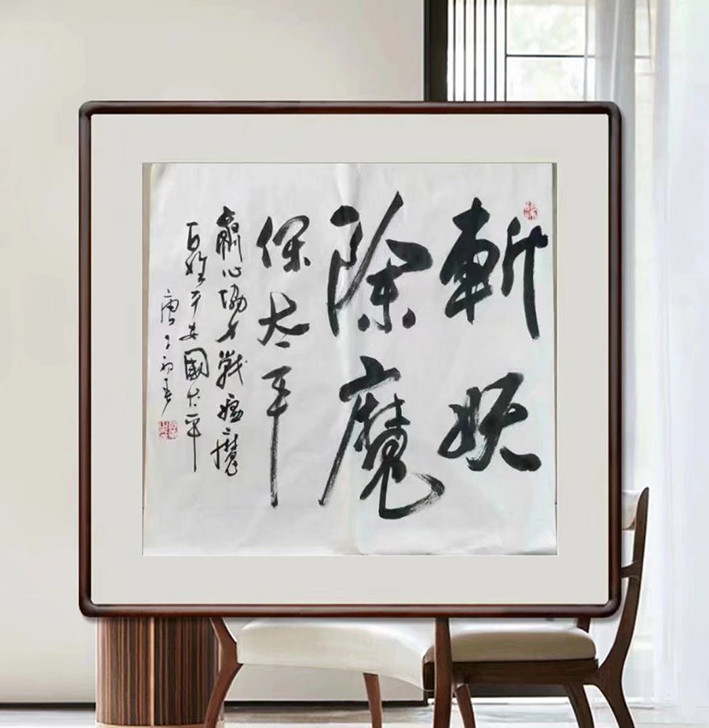 斬妖
除魔
保太平
齊心協力戰瘟魔
百姓平安國太平
庚子初春